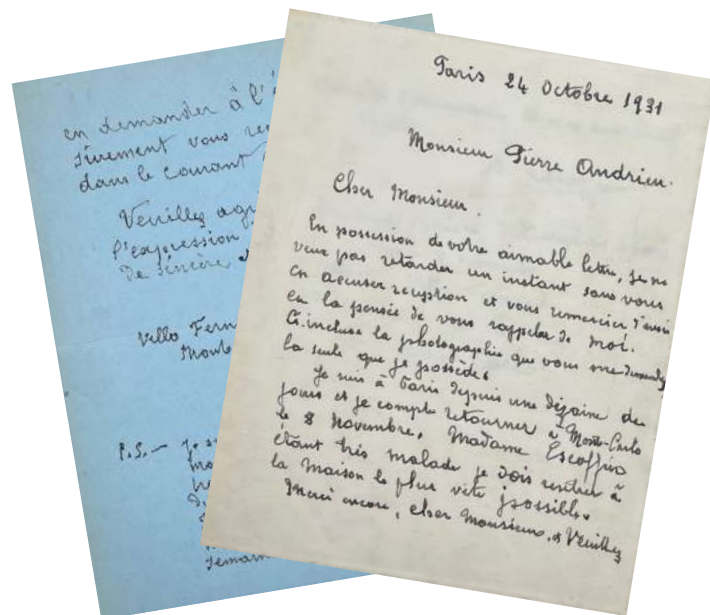 en demander à l'
vous
dans le courant
Veuillez
l'expression
de sincère
Villa
P.S. — Je
Paris 24 Octobre 1931
Monsieur Pierre Andrieu.
Cher Monsieur.
En possession de votre aimable lettre, je ne
veux pas retarder un instant sans vous
en accuser reception et vous remercier d'avoir
eu la pensée de vous rappeler de moi.
Ci-incluse la photographie que vous me demandez
la seule que je possède.
Je suis à Paris depuis une dizaine de
jours et je compte retourner à Monte-Carlo
le 8 Novembre, Madame Escoffier
étant très malade je dois rentrer à
la maison le plus vite possible.
Merci encore, cher Monsieur, & Veuillez